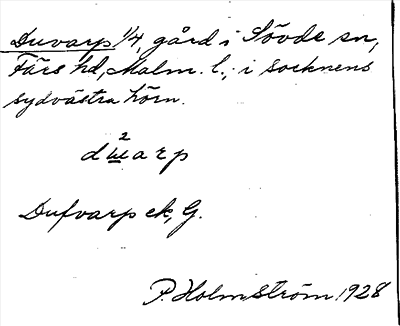 Duvarp 1/4, gård i Sövde sn,
Färs hd, Malm. l.; i socknens
sydvästra hörn.
2
dɯarp
Dufvarp ek, G.
P. Holmström 1928